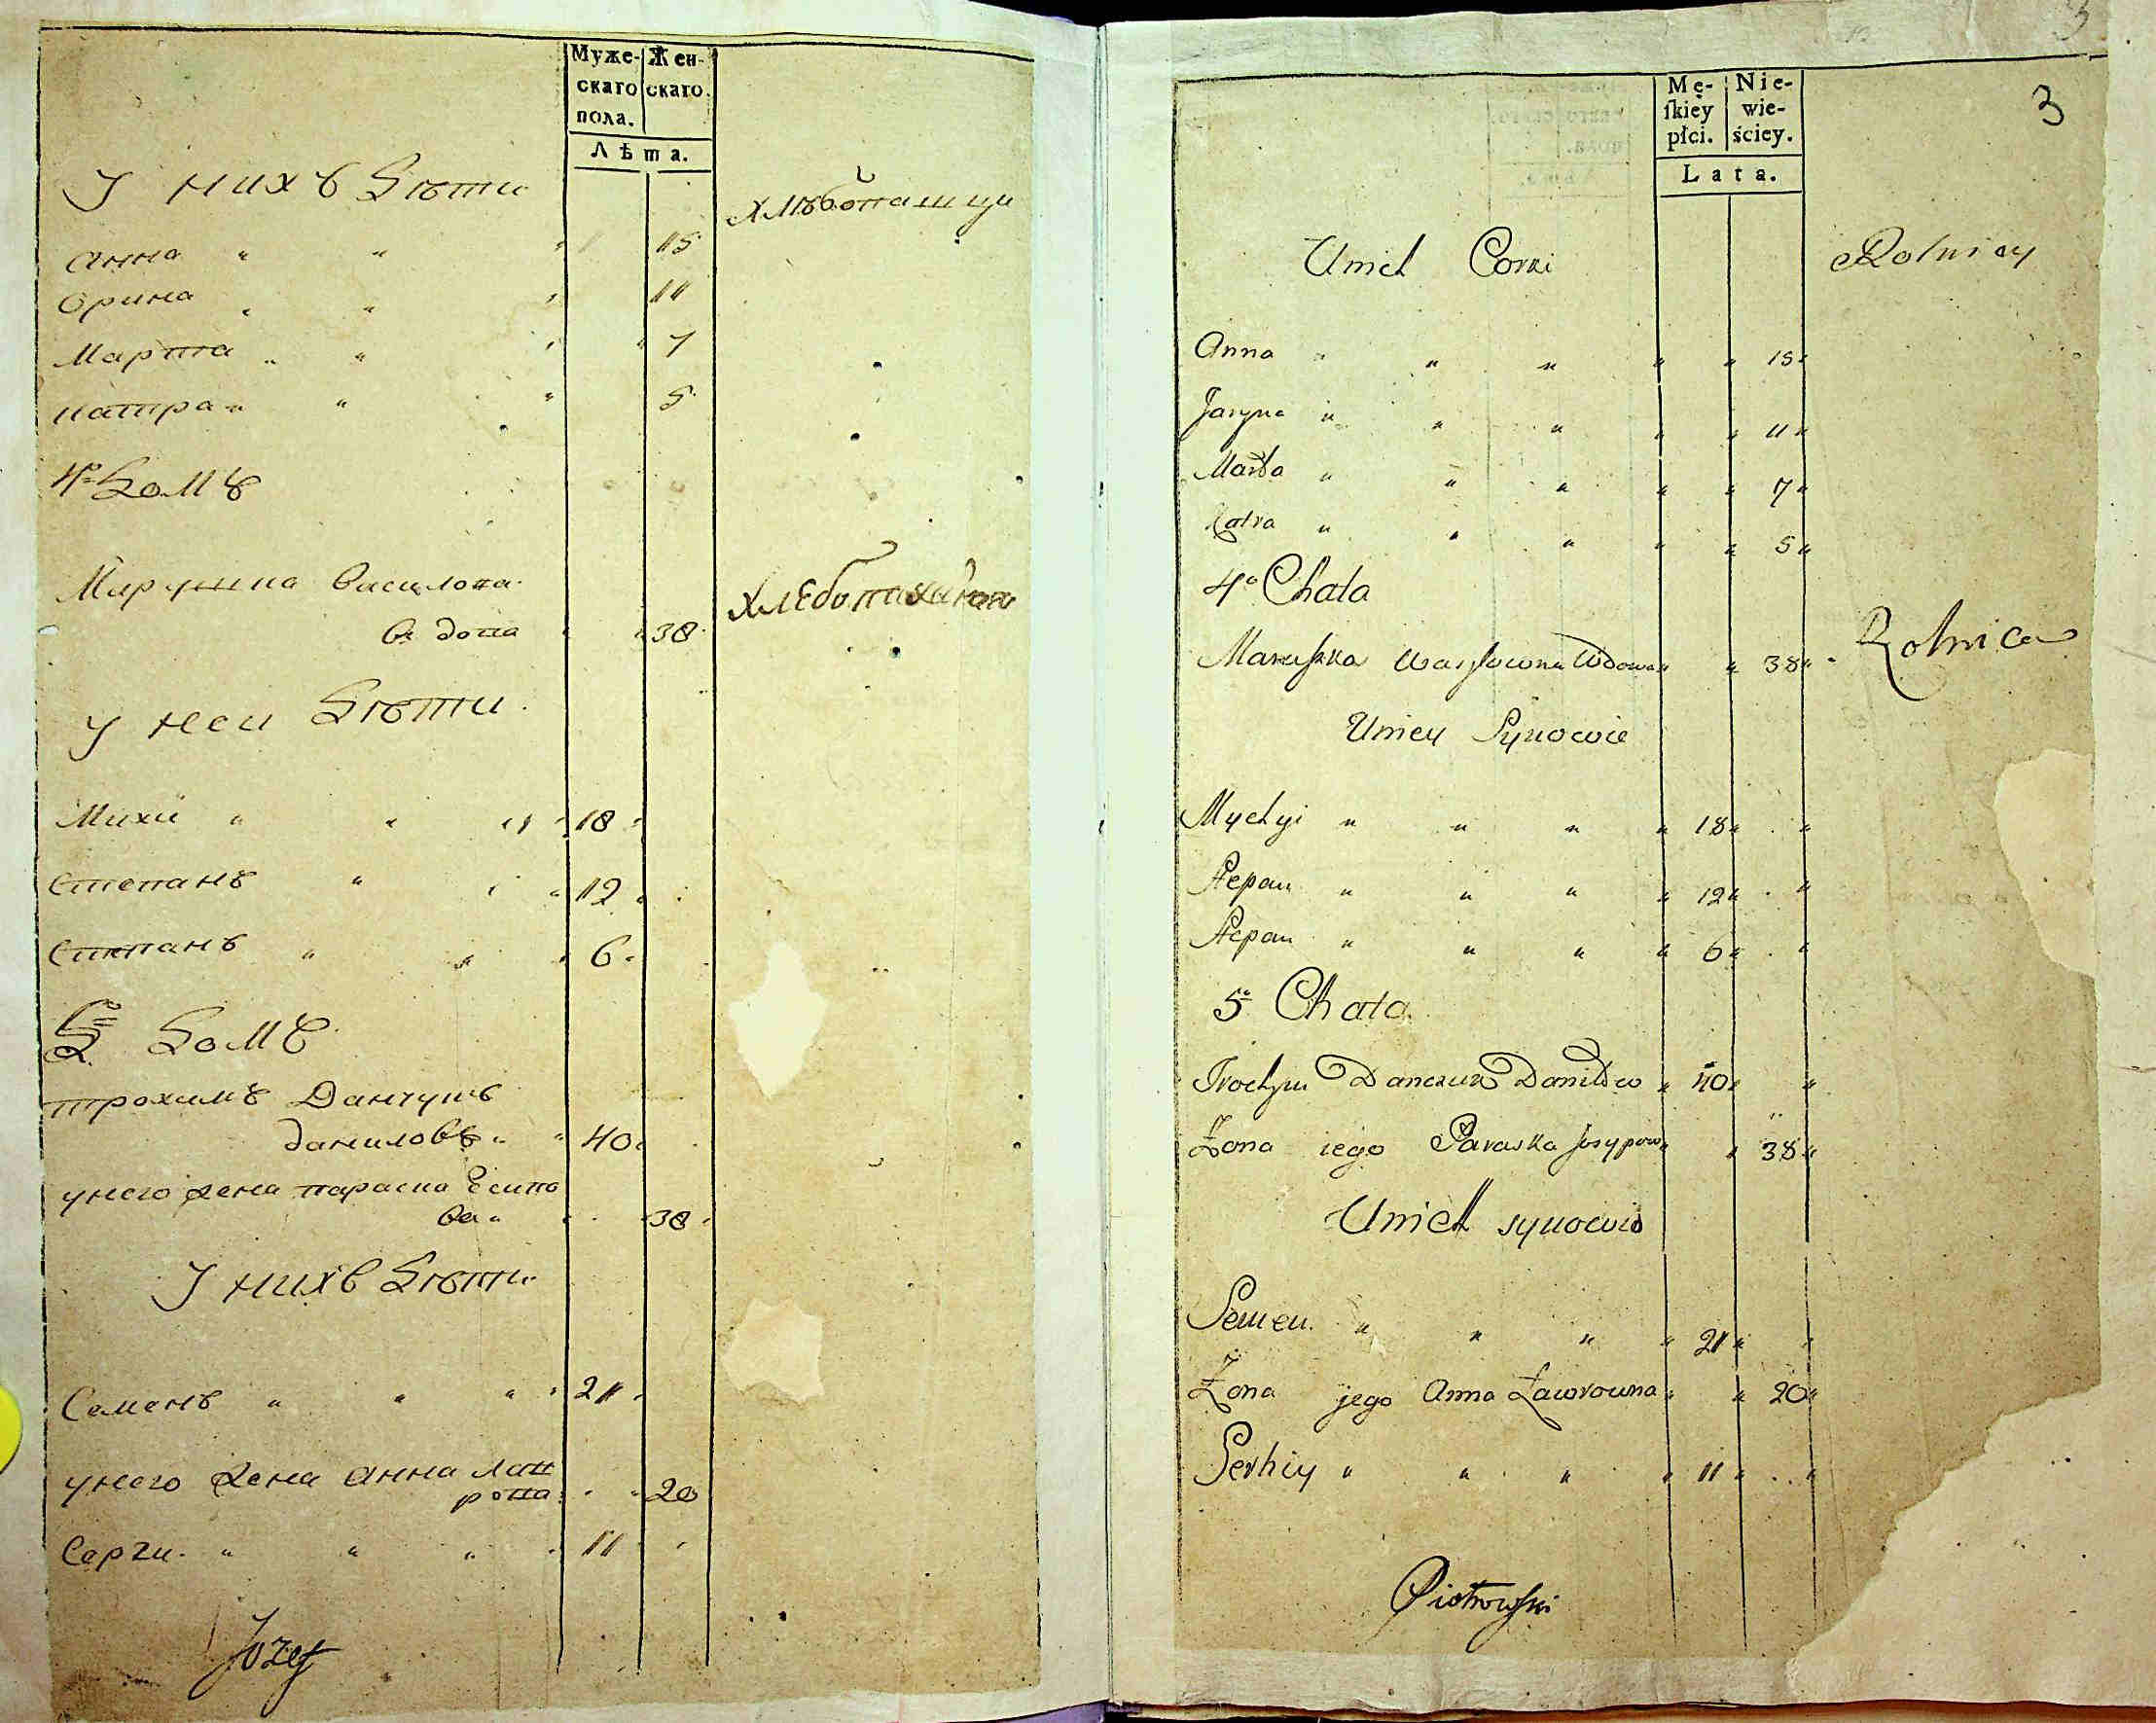 Муже-
скаго
пола.
Жен-
скаго.
Лѣта.
У нихъ Дѣти
хлѣбопашци
Анна " " " 15
Орина " " " 11
Марта " " " 7
Катра " " " 5
4й Домъ
Марушка Василова
вдова " " 38
Хлебопашица
У неи Дѣти
Михи " " " 18
Степанъ " " " 12
Степанъ " " " 6
5й Домъ
Трохимъ Данчукъ
Даниловъ " " 40
У него жена Параска Есипо
ва " " 38
У нихъ Дѣти
Семенъ " " " 21
У него жена Анна Лав
рова " " 20
Серги " " " 11
Jozef
3
Mę-
ſkiéy
płci.
Nie-
wie-
ściey.
Lata.
3
Unich Corki
Rolnicy
Anna " " " " " 15
Jaryna " " " " " 11
Marta " " " " " 7
Katra " " " " " 5
4a Chata
Maruszka Wasylowna Wdowa " " 38
Rolnica
Uniey Synowie
Mychyi " " " " 18 "
Stepan " " " " 12 "
Stepan " " " " 6 "
5a Chata
Trochym Danczuk Daniłow " 40 "
Żona iego Paraska Josypow " " 38
Unich synowie
Semen " " " " 21 "
Żona jego Anna Ławrowna " " 20
Serhiy " " " " 11 "
Piotrowſki